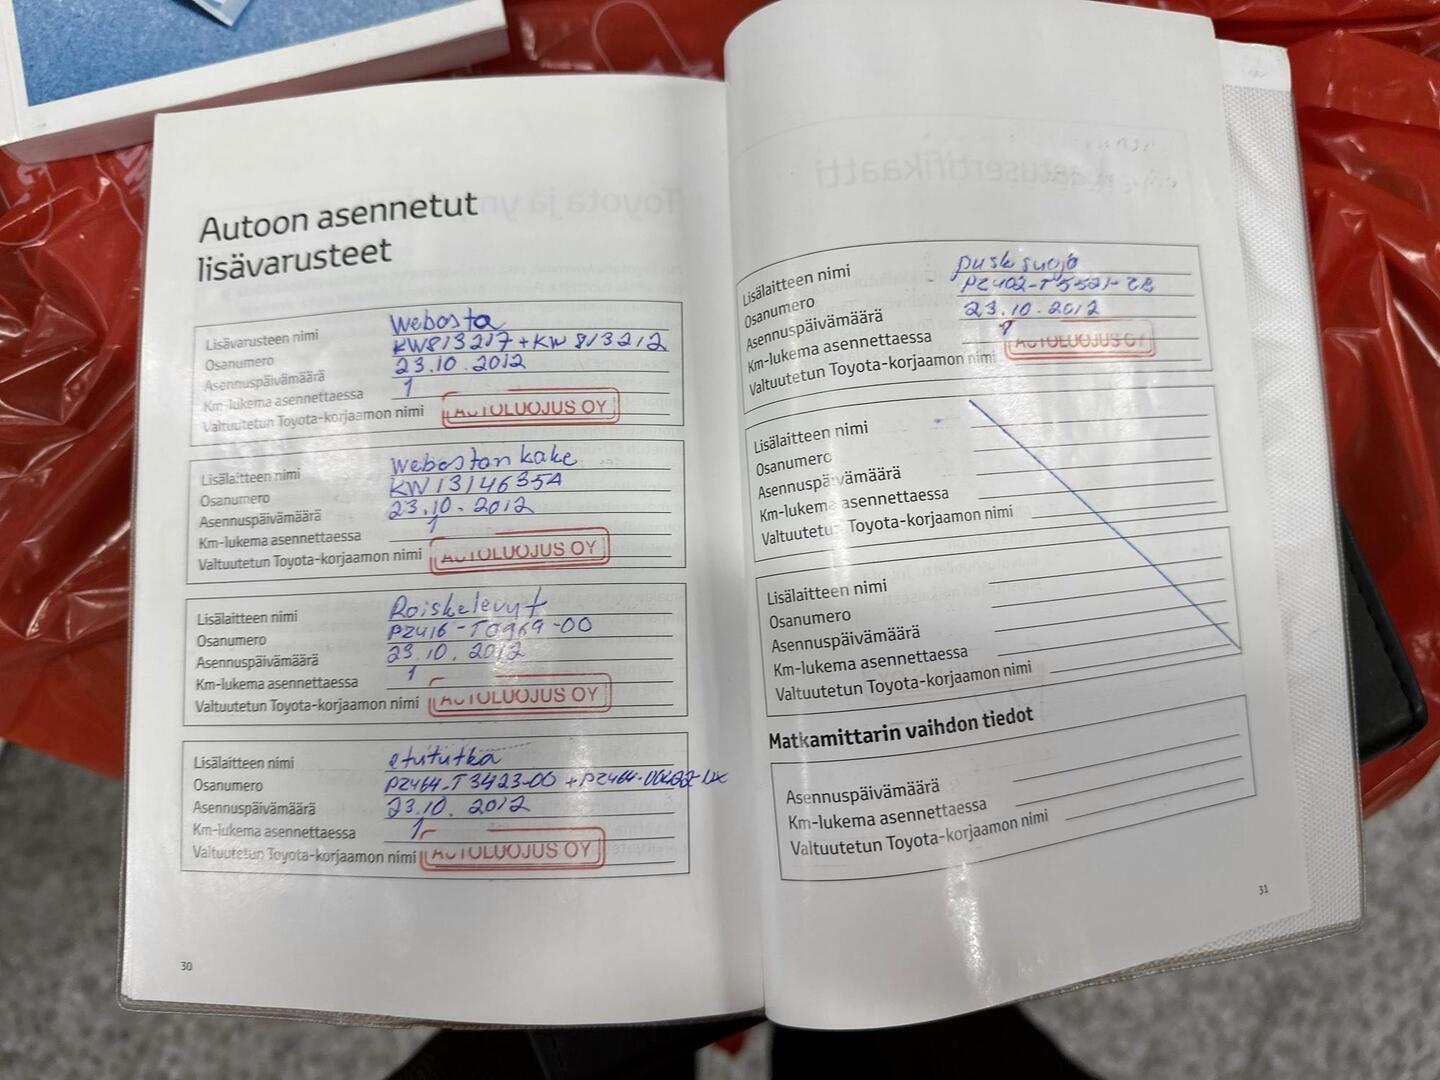 Autoon asennetut
lisävarusteet
Lisävarusteen nimi Webasta
Osanumero KW813217+KW813212
Asennuspäivämäärä 23.10.2012
Km-lukema asennettaessa 1
Valtuutetun Toyota-korjaamon nimi AUTOLUOJUS OY
Lisälaitteen nimi Webastan kake
Osanumero KW1314635A
Asennuspäivämäärä 23.10.2012
Km-lukema asennettaessa 1
Valtuutetun Toyota-korjaamon nimi AUTOLUOJUS OY
Lisälaitteen nimi Roiskelevyt
Osanumero PZ416-T0969-00
Asennuspäivämäärä 23.10.2012
Km-lukema asennettaessa 1
Valtuutetun Toyota-korjaamon nimi AUTOLUOJUS OY
Lisälaitteen nimi etututka
Osanumero PZ464-T3423-00
Asennuspäivämäärä 23.10.2012
Km-lukema asennettaessa 1
Valtuutetun Toyota-korjaamon nimi AUTOLUOJUS OY
30
Lisälaitteen nimi pusk suoja
Osanumero PZ402-T5521-ZB
Asennuspäivämäärä 23.10.2012
Km-lukema asennettaessa 1
Valtuutetun Toyota-korjaamon nimi AUTOLUOJUS OY
Lisälaitteen nimi
Osanumero
Asennuspäivämäärä
Km-lukema asennettaessa
Valtuutetun Toyota-korjaamon nimi
Lisälaitteen nimi
Osanumero
Asennuspäivämäärä
Km-lukema asennettaessa
Valtuutetun Toyota-korjaamon nimi
Matkamittarin vaihdon tiedot
Asennuspäivämäärä
Km-lukema asennettaessa
Valtuutetun Toyota-korjaamon nimi
31